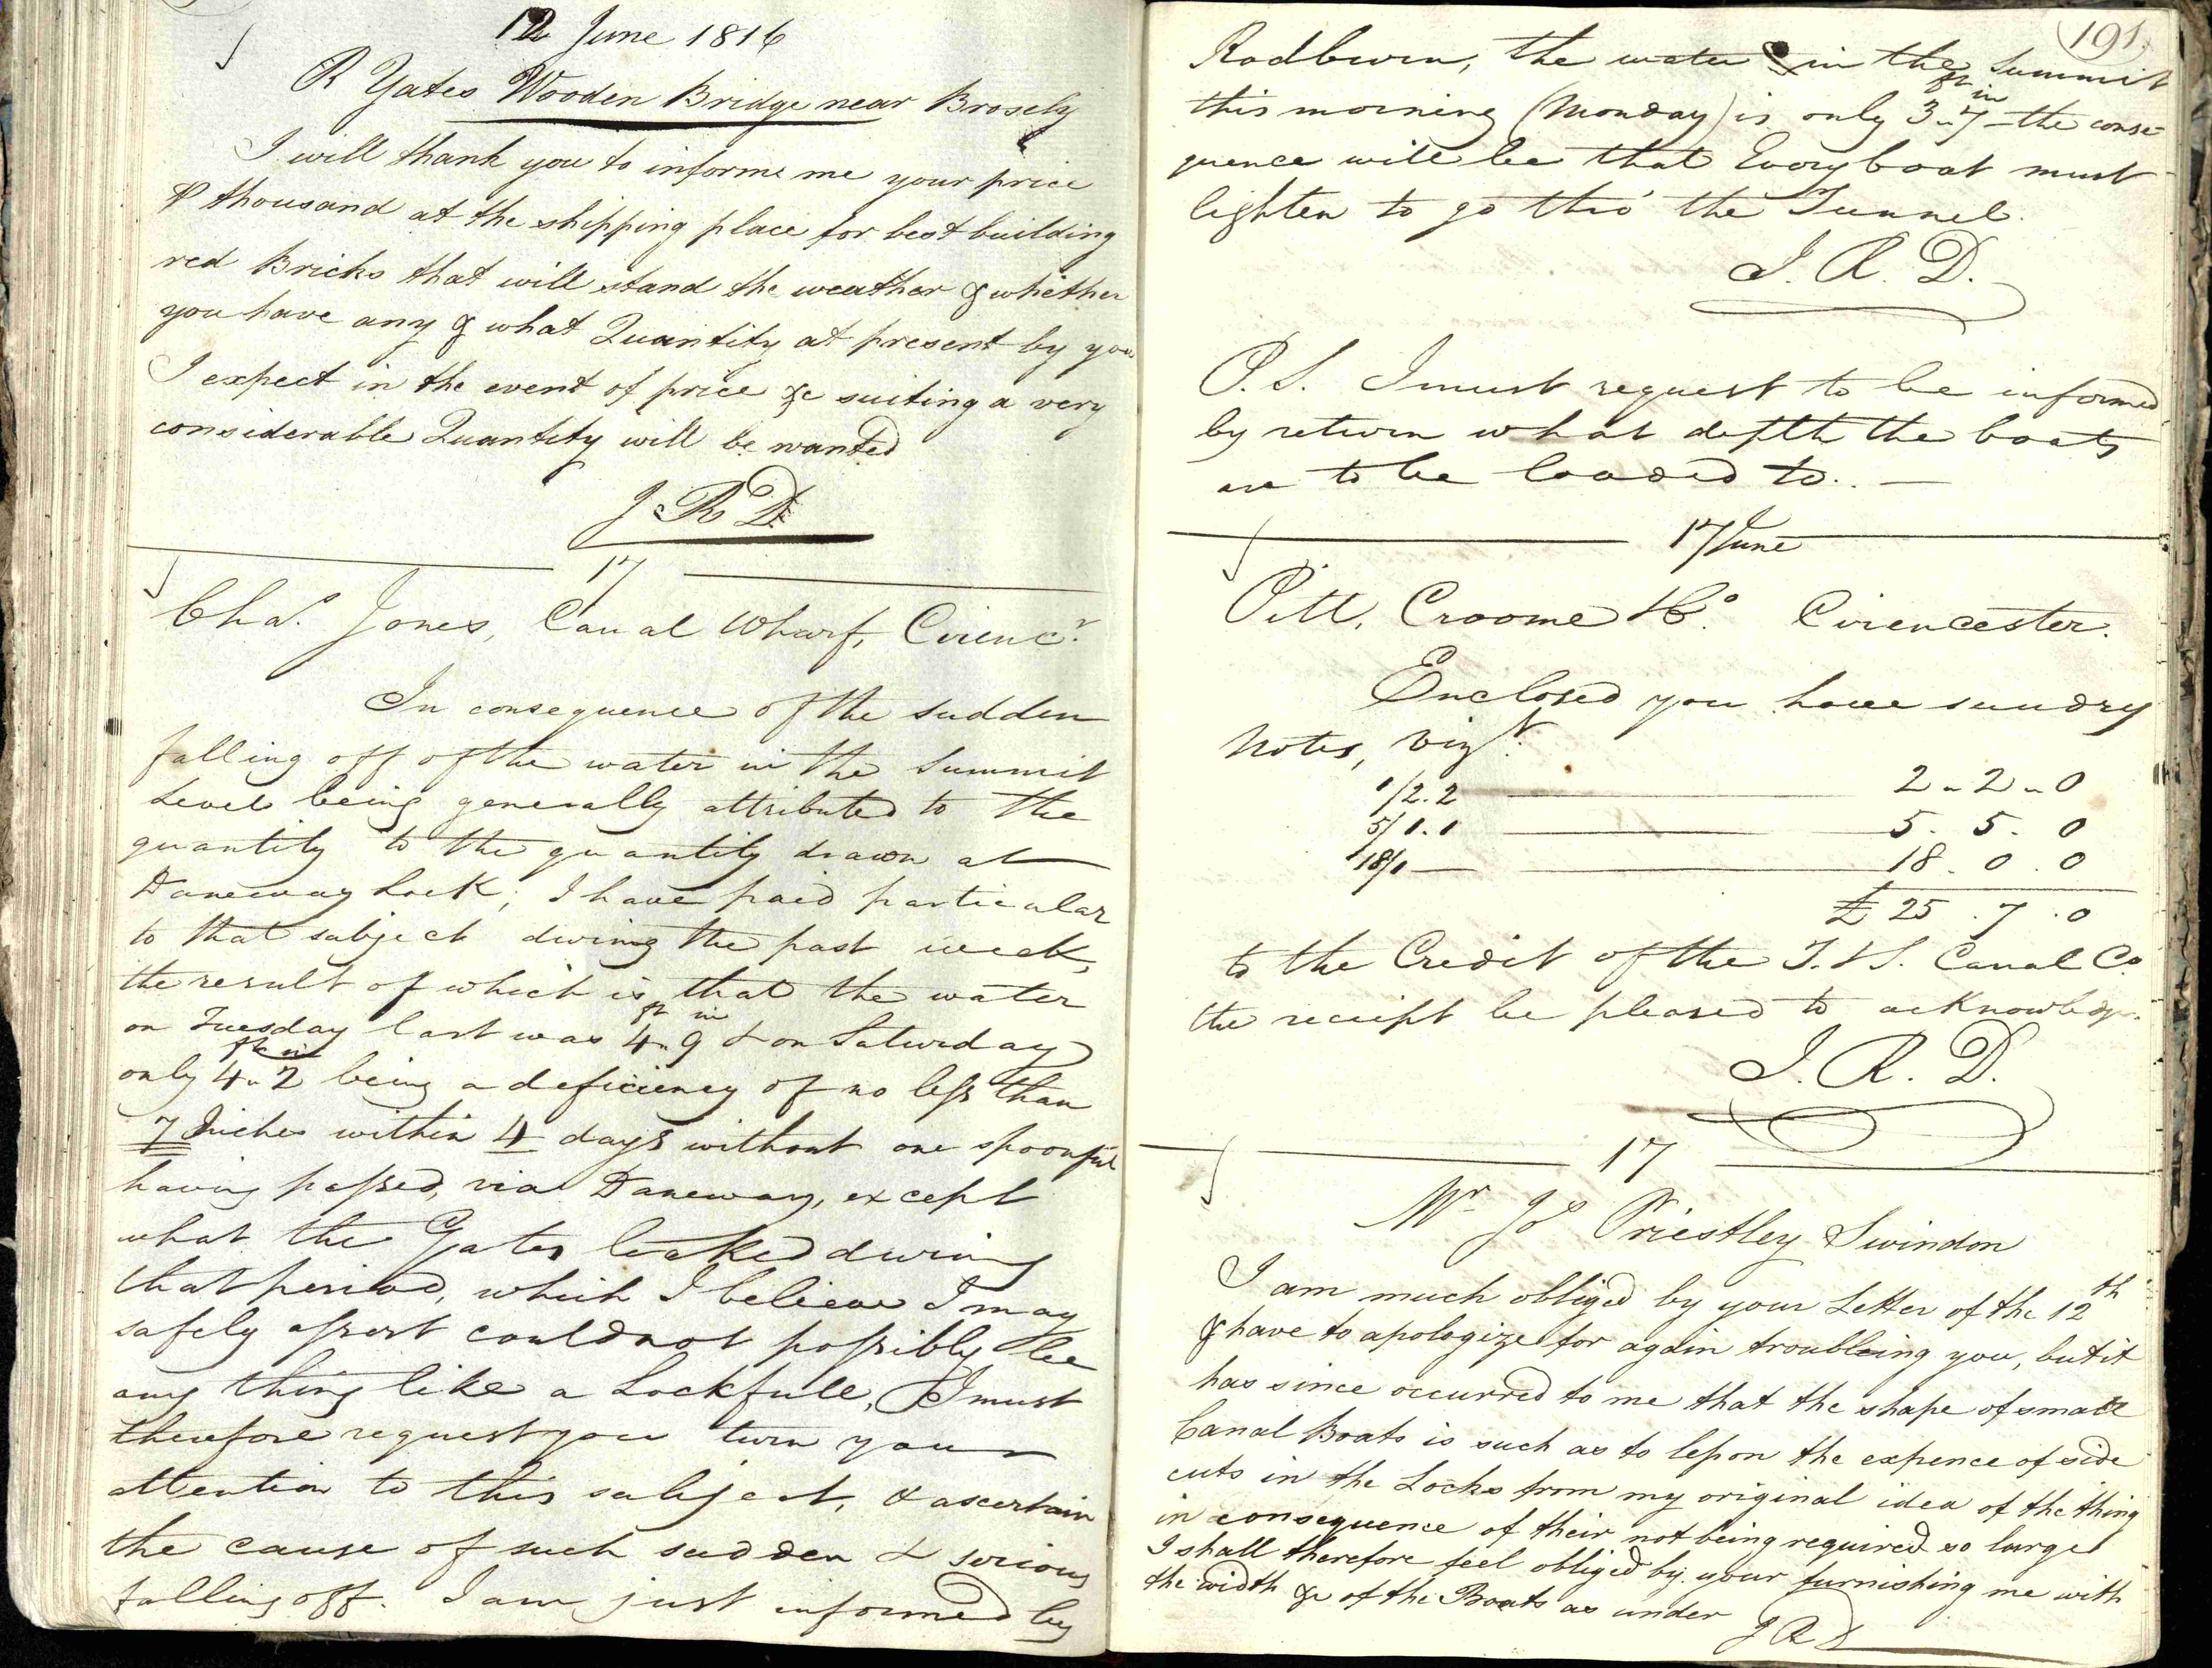 12 June 1816
R Yates Wooden Bridge near Brosely
I will thank you to informe me your price
⅌ thousand at the shipping place for best building
red Bricks that will stand the weather & whether
you have any & what Quantity at present by you
I expect in the event of price &c suiting a very
considerable Quantity will be wanted
J R D
17
Chas. Jones, Canal Wharf, Cirencr.
In consequence of the sudden
falling off of the water in the Summit
Level being generally attributed to the
quantity to the quantity drawn at
Daneway Lock; I have paid particular
to that subject during the past week,
the result of which is that the water
on Tuesday last was 4 ft 9 in & on Saturday
only 4 ft 2 in being a deficiency of no less than
7 Inches within 4 days without one spoonful
having passed, via Daneway, except
what the Gates leaked during
that period, which I believe I may
safely assert could not possibly be
any thing like a Lockfull, I must
therefore request you turn your
attention to this subject, & ascertain
the cause of such sudden & serious
falling off. I am just informed by
191.
Rodburn, the water in the Summit
this morning (Monday) is only 3 ft 7 in - the conse-
quence will be that Every boat must
lighten to go thro' the Tunnel.
J. R. D.
P.S. I must request to be informed
by return what depth the boats
are to be loaded to. -
17 June
Pitt, Croome & Co. Cirencester.
Enclosed you have sundry
Notes, vizt.
1/2.2 2 - 2 - 0
5/1.1 5. 5. 0
18/1 18. 0. 0
£ 25. 7. 0
to the Credit of the T. & S. Canal Co.
the receipt be pleased to acknowledge.
J. R. D.
17
Mr Jos Priestley Swindon
I am much obliged by your Letter of the 12th
& have to apologize for again troubling you, but it
has since occurred to me that the shape of small
Canal Boats is such as to lesson the expence of side
cuts in the Locks from my original idea of the thing
in consequence of their not being required so large
I shall therefore feel obliged by your furnishing me with
the width &c of the Boats as under
J R D